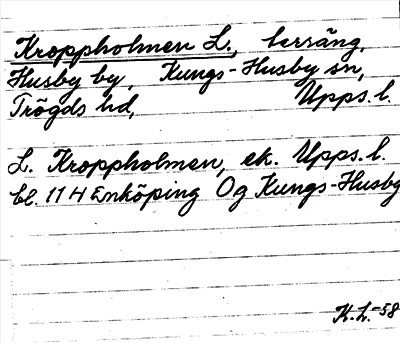 Kroppholmen L., beräng,
Husby by, Kungs-Husby sn,
Trögds hd, Upps. l.
L. Kroppholmen, ek. Upps. l.
bl. 11 H Enköping Og Kungs-Husby
K.L.-58